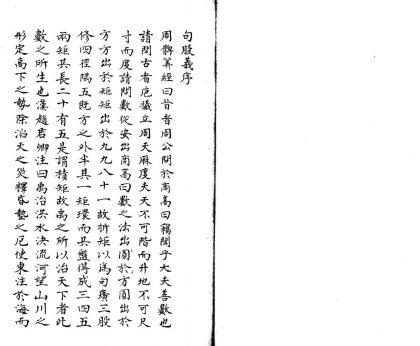 句股義序
周髀筭經曰昔者周公問於商高曰竊聞乎大夫善數也
請問古者庖犧立周天厤度夫天不可階而升地不可尺
寸而度請問數從安出商高曰數之法出於圓方圓出於
方方出於矩矩出於九九八十一故折矩以為句廣三股
修四徑隅五既方之外半其一矩環而共盤得成三四五
兩矩共長二十有五是謂積矩故禹之所以治天下者此
數之所生也漢趙君卿注曰禹治洪水決流河望山川之
形定高下之勢除滔天之災釋昏墊之厄使東注於海而